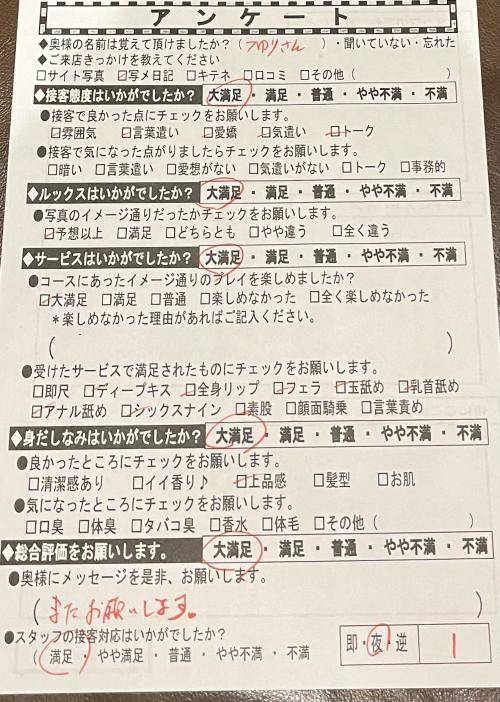 アンケート
◆奥様の名前は覚えて頂けましたか?( さん )・聞いていない・忘れた
◆ご来店きっかけを教えてください
□サイト写真 ☑写メ日記 □キテネ □口コミ □その他( )
◆接客態度はいかがでしたか? 大満足・満足・普通・やや不満・不満
●接客で良かった点にチェックをお願いします。
☑雰囲気 ☑言葉遣い ☑愛嬌 ☑気遣い ☑トーク
●接客で気になった点がありましたらチェックをお願いします。
□暗い □言葉遣い □愛想がない □気遣いがない □トーク □事務的
◆ルックスはいかがでしたか? 大満足・満足・普通・やや不満・不満
●写真のイメージ通りだったかチェックをお願いします。
☑予想以上 □満足 □どちらとも □やや違う □全く違う
◆サービスはいかがでしたか? 大満足・満足・普通・やや不満・不満
●コースにあったイメージ通りのプレイを楽しめましたか?
☑大満足 □満足 □普通 □楽しめなかった □全く楽しめなかった
*楽しめなかった理由があればご記入ください。
( )
●受けたサービスで満足されたものにチェックをお願いします。
□即尺 □ディープキス ☑全身リップ ☑フェラ ☑玉舐め ☑乳首舐め
☑アナル舐め ☑シックスナイン □素股 □顔面騎乗 □言葉責め
◆身だしなみはいかがでしたか? 大満足・満足・普通・やや不満・不満
●良かったところにチェックをお願いします。
□清潔感あり □イイ香り♪ ☑上品感 □髪型 □お肌
●気になったところにチェックをお願いします。
□口臭 □体臭 □タバコ臭 □香水 □体毛 □その他( )
◆総合評価をお願いします。 大満足・満足・普通・やや不満・不満
●奥様にメッセージを是非、お願いします。
(またお願いします。 )
●スタッフの接客対応はいかがでしたか?
( 満足・やや満足・普通・やや不満・不満
即・夜・逆 1